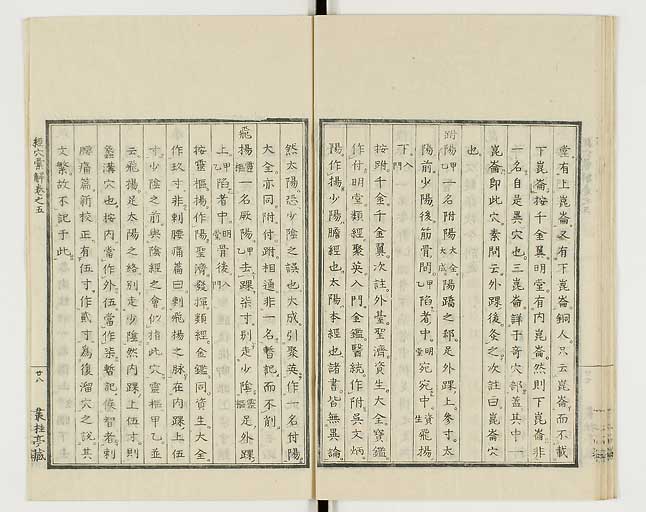 堂有上崑崙又有下崑崙銅人只云崑崙而不載
下崑崙按千金翼明堂有內崑崙然則下崑崙非
一名自是異穴也三崑崙詳于奇穴部蓋其中一
崑崙卽此穴素問云外踝後灸之次註曰崑崙穴
也
跗陽甲乙一名附陽大全大成陽蹻之郄足外踝上參寸太
陽前少陽後筋骨間甲乙陷者中明堂宛宛中資生飛揚
下入門
按跗千金千金翼次註外臺聖濟資生大全寶鑑
作付明堂類經聚英入門金鑑醫統作附吳文炳
陽作揚少陽膽經也太陽本經也諸書皆無異論
然太陽恐少陰之誤也大成引聚英作一名付陽
大全亦同附付跗相通非一名暫記而不削
飛揚靈樞一名厥陽甲乙去踝柒寸別走少陰靈樞足外踝
上甲乙陷者中明堂骨後入門
按靈樞揚作陽聖濟發揮類經金鑑同資生大全
作玖寸非刺腰痛篇曰刺飛揚之脉在內踝上伍
寸少陰之前與陰維之會似指此穴靈樞甲乙並
云飛揚足太陽之絡別走少陰然內踝上伍寸則
蠡溝穴也按內當作外伍當作柒暫記俟智者刺
腰痛篇新校正有伍寸作貳寸爲復溜穴之說其
文繁故不記于此
經穴彙解卷之五
廿八
叢桂亭藏